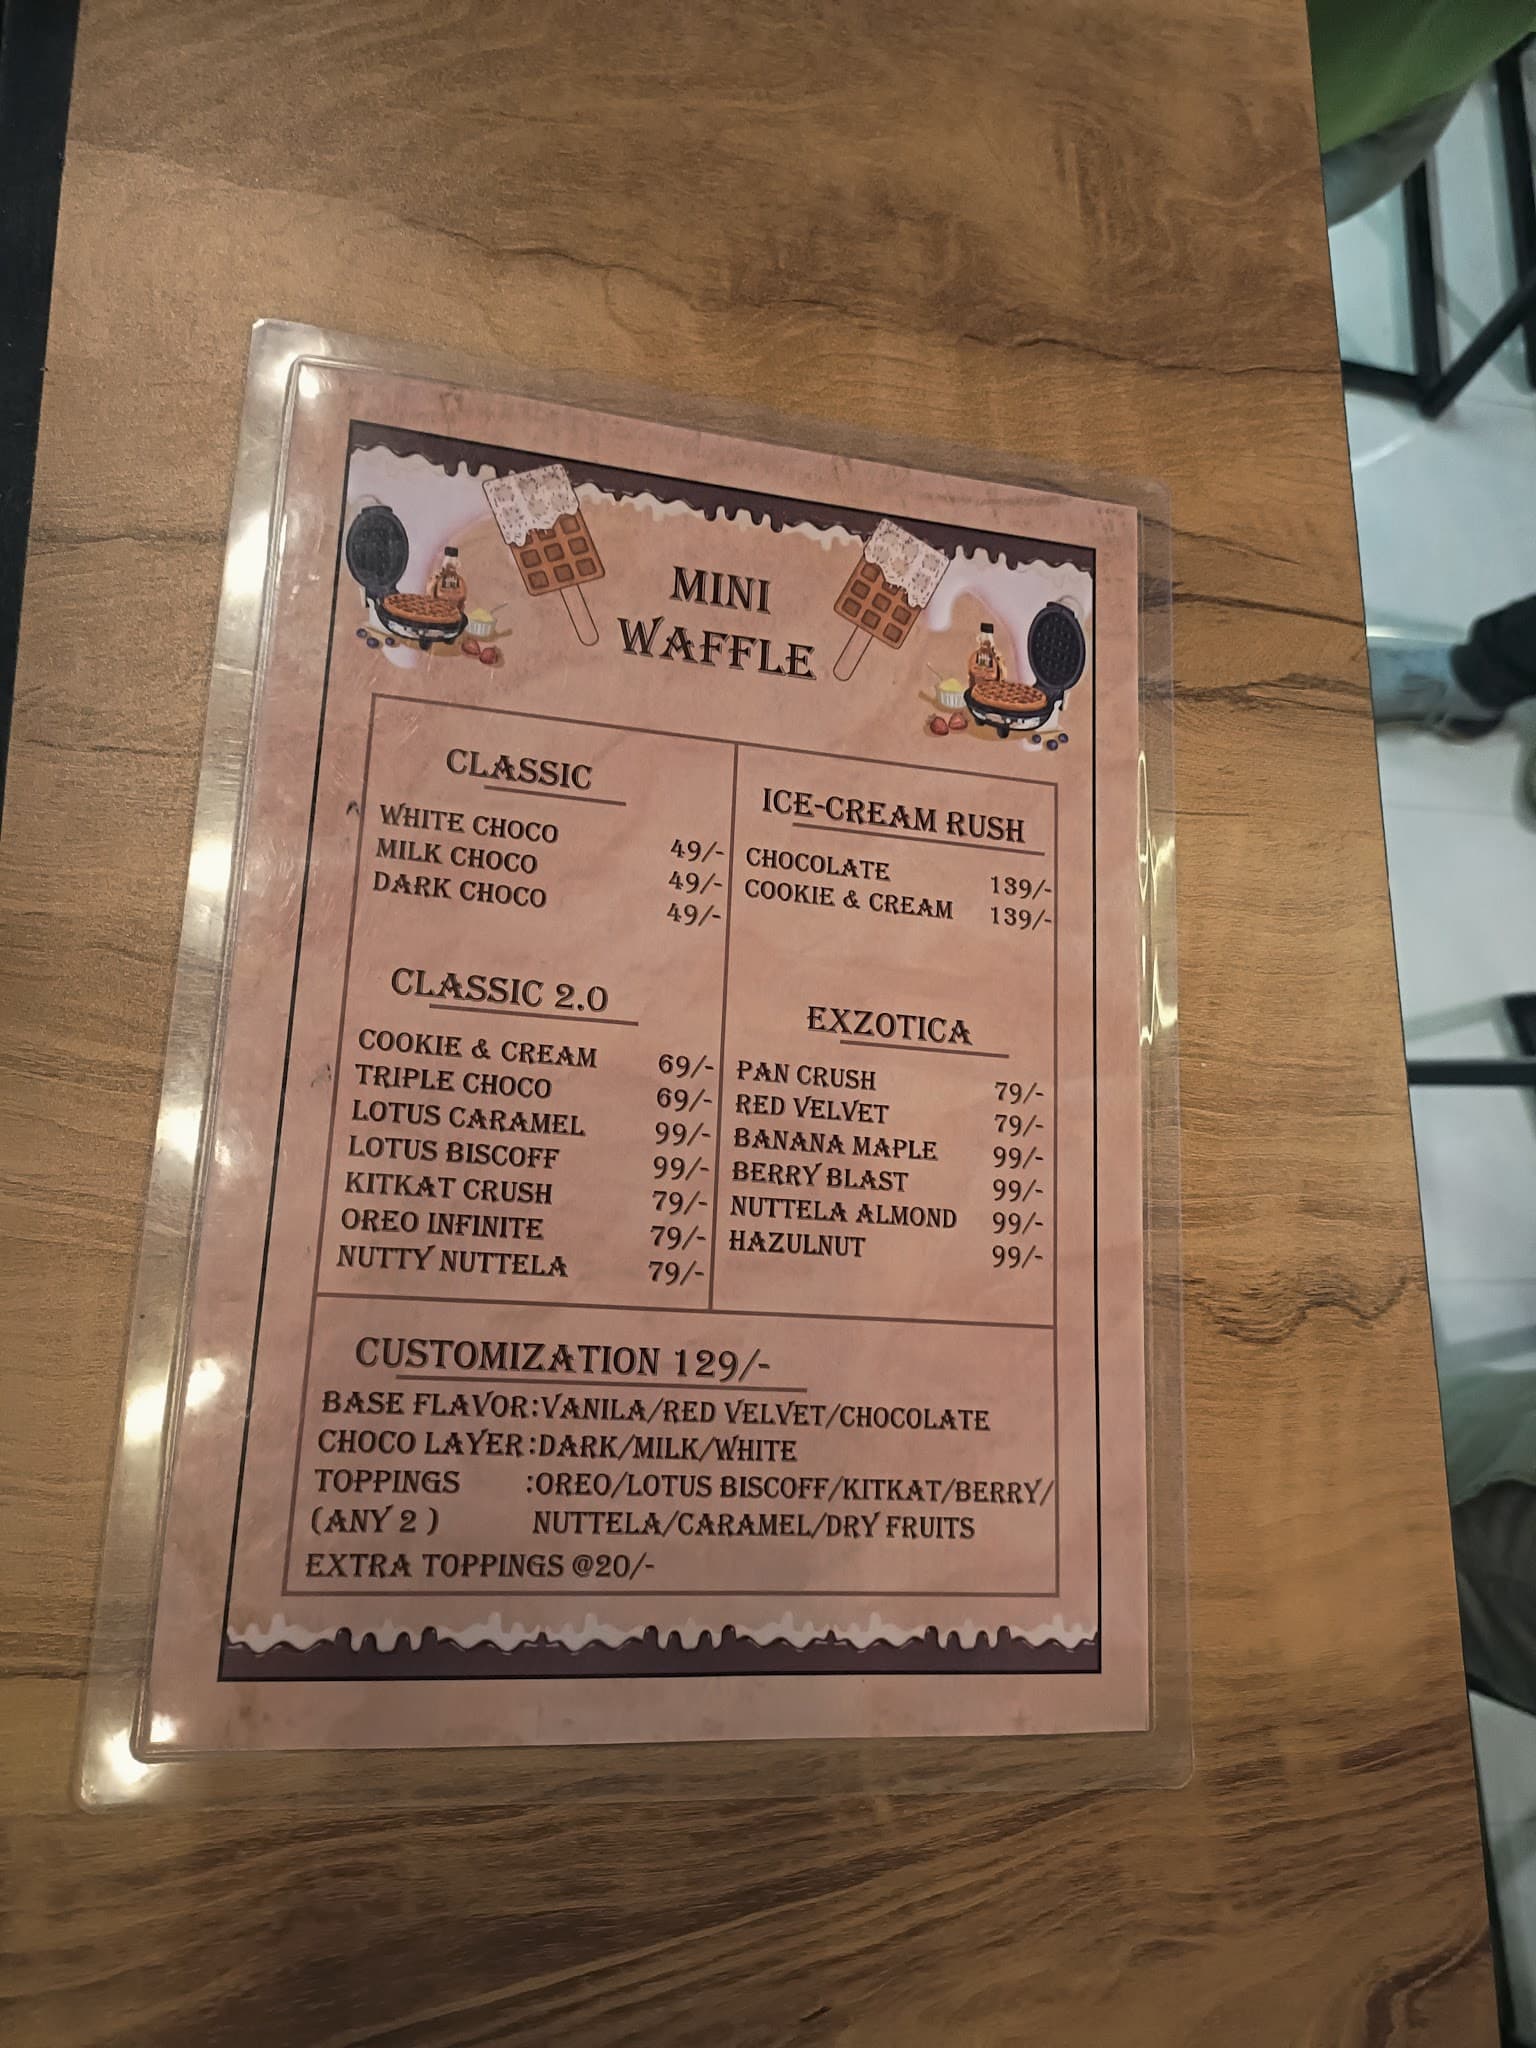 MINI
WAFFLE
CLASSIC
WHITE CHOCO 49/-
MILK CHOCO 49/-
DARK CHOCO 49/-
CLASSIC 2.0
COOKIE & CREAM 69/-
TRIPLE CHOCO 69/-
LOTUS CARAMEL 99/-
LOTUS BISCOFF 99/-
KITKAT CRUSH 79/-
OREO INFINITE 79/-
NUTTY NUTTELA 79/-
ICE-CREAM RUSH
CHOCOLATE 139/-
COOKIE & CREAM 139/-
EXZOTICA
PAN CRUSH 79/-
RED VELVET 79/-
BANANA MAPLE 99/-
BERRY BLAST 99/-
NUTTELA ALMOND 99/-
HAZULNUT 99/-
CUSTOMIZATION 129/-
BASE FLAVOR:VANILA/RED VELVET/CHOCOLATE
CHOCO LAYER:DARK/MILK/WHITE
TOPPINGS :OREO/LOTUS BISCOFF/KITKAT/BERRY/
(ANY 2 ) NUTTELA/CARAMEL/DRY FRUITS
EXTRA TOPPINGS @20/-